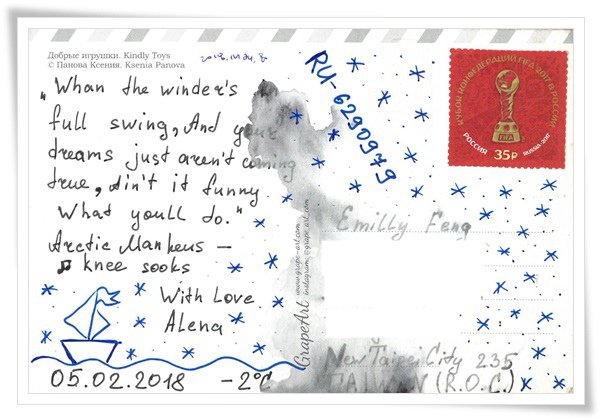 Добрые игрушки. Kindly Toys
© Панова Ксения. Ksenia Panova
„Whan the winder's in
full swing, And your
dreams just aren't coming
true, Ain't it funny
What youll do."
Arctic Mankeus –
♫ knee sooks
With Love
Alena
05.02.2018 -2°C
RU-6290979
GrapeArt
www.grape-art.com
instagram: @grape.art.com
КУБОК КОНФЕДЕРАЦИЙ FIFA 2017 В РОССИИ
FIFA
РОССИЯ
35₽
RUSSIA·2017
Emilly Feng
New Taipei City 235
TAIWAN (R.O.C.)